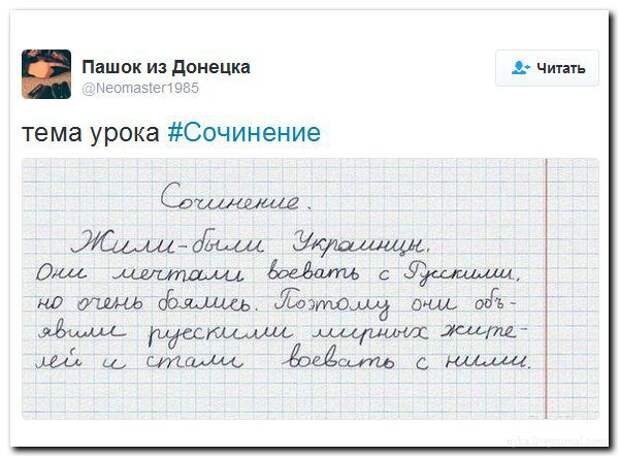 Пашок из Донецка
Читать
@Neomaster1985
тема урока #Сочинение
Сочинение.
Жили-были Украинцы.
Они мечтали воевать с Русскими,
но очень боялись. Поэтому они объ-
явили русскими мирных жите-
лей и стали воевать с ними.